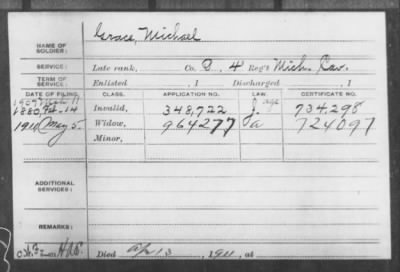 Grace, Michael
NAME OF SOLDIER:
SERVICE: Late rank, Co. B, 4 Reg't Mich. Cav.
TERM OF SERVICE: Enlisted , 1 Discharged , 1
DATE OF FILING. CLASS. APPLICATION NO. LAW. CERTIFICATE NO.
1880, Feb. 14 Invalid, 348,722 age 734,298
1911 May 5. Widow, 964277 a 724097
Minor,
ADDITIONAL SERVICES:
REMARKS:
Died Apr 13, 1911, at